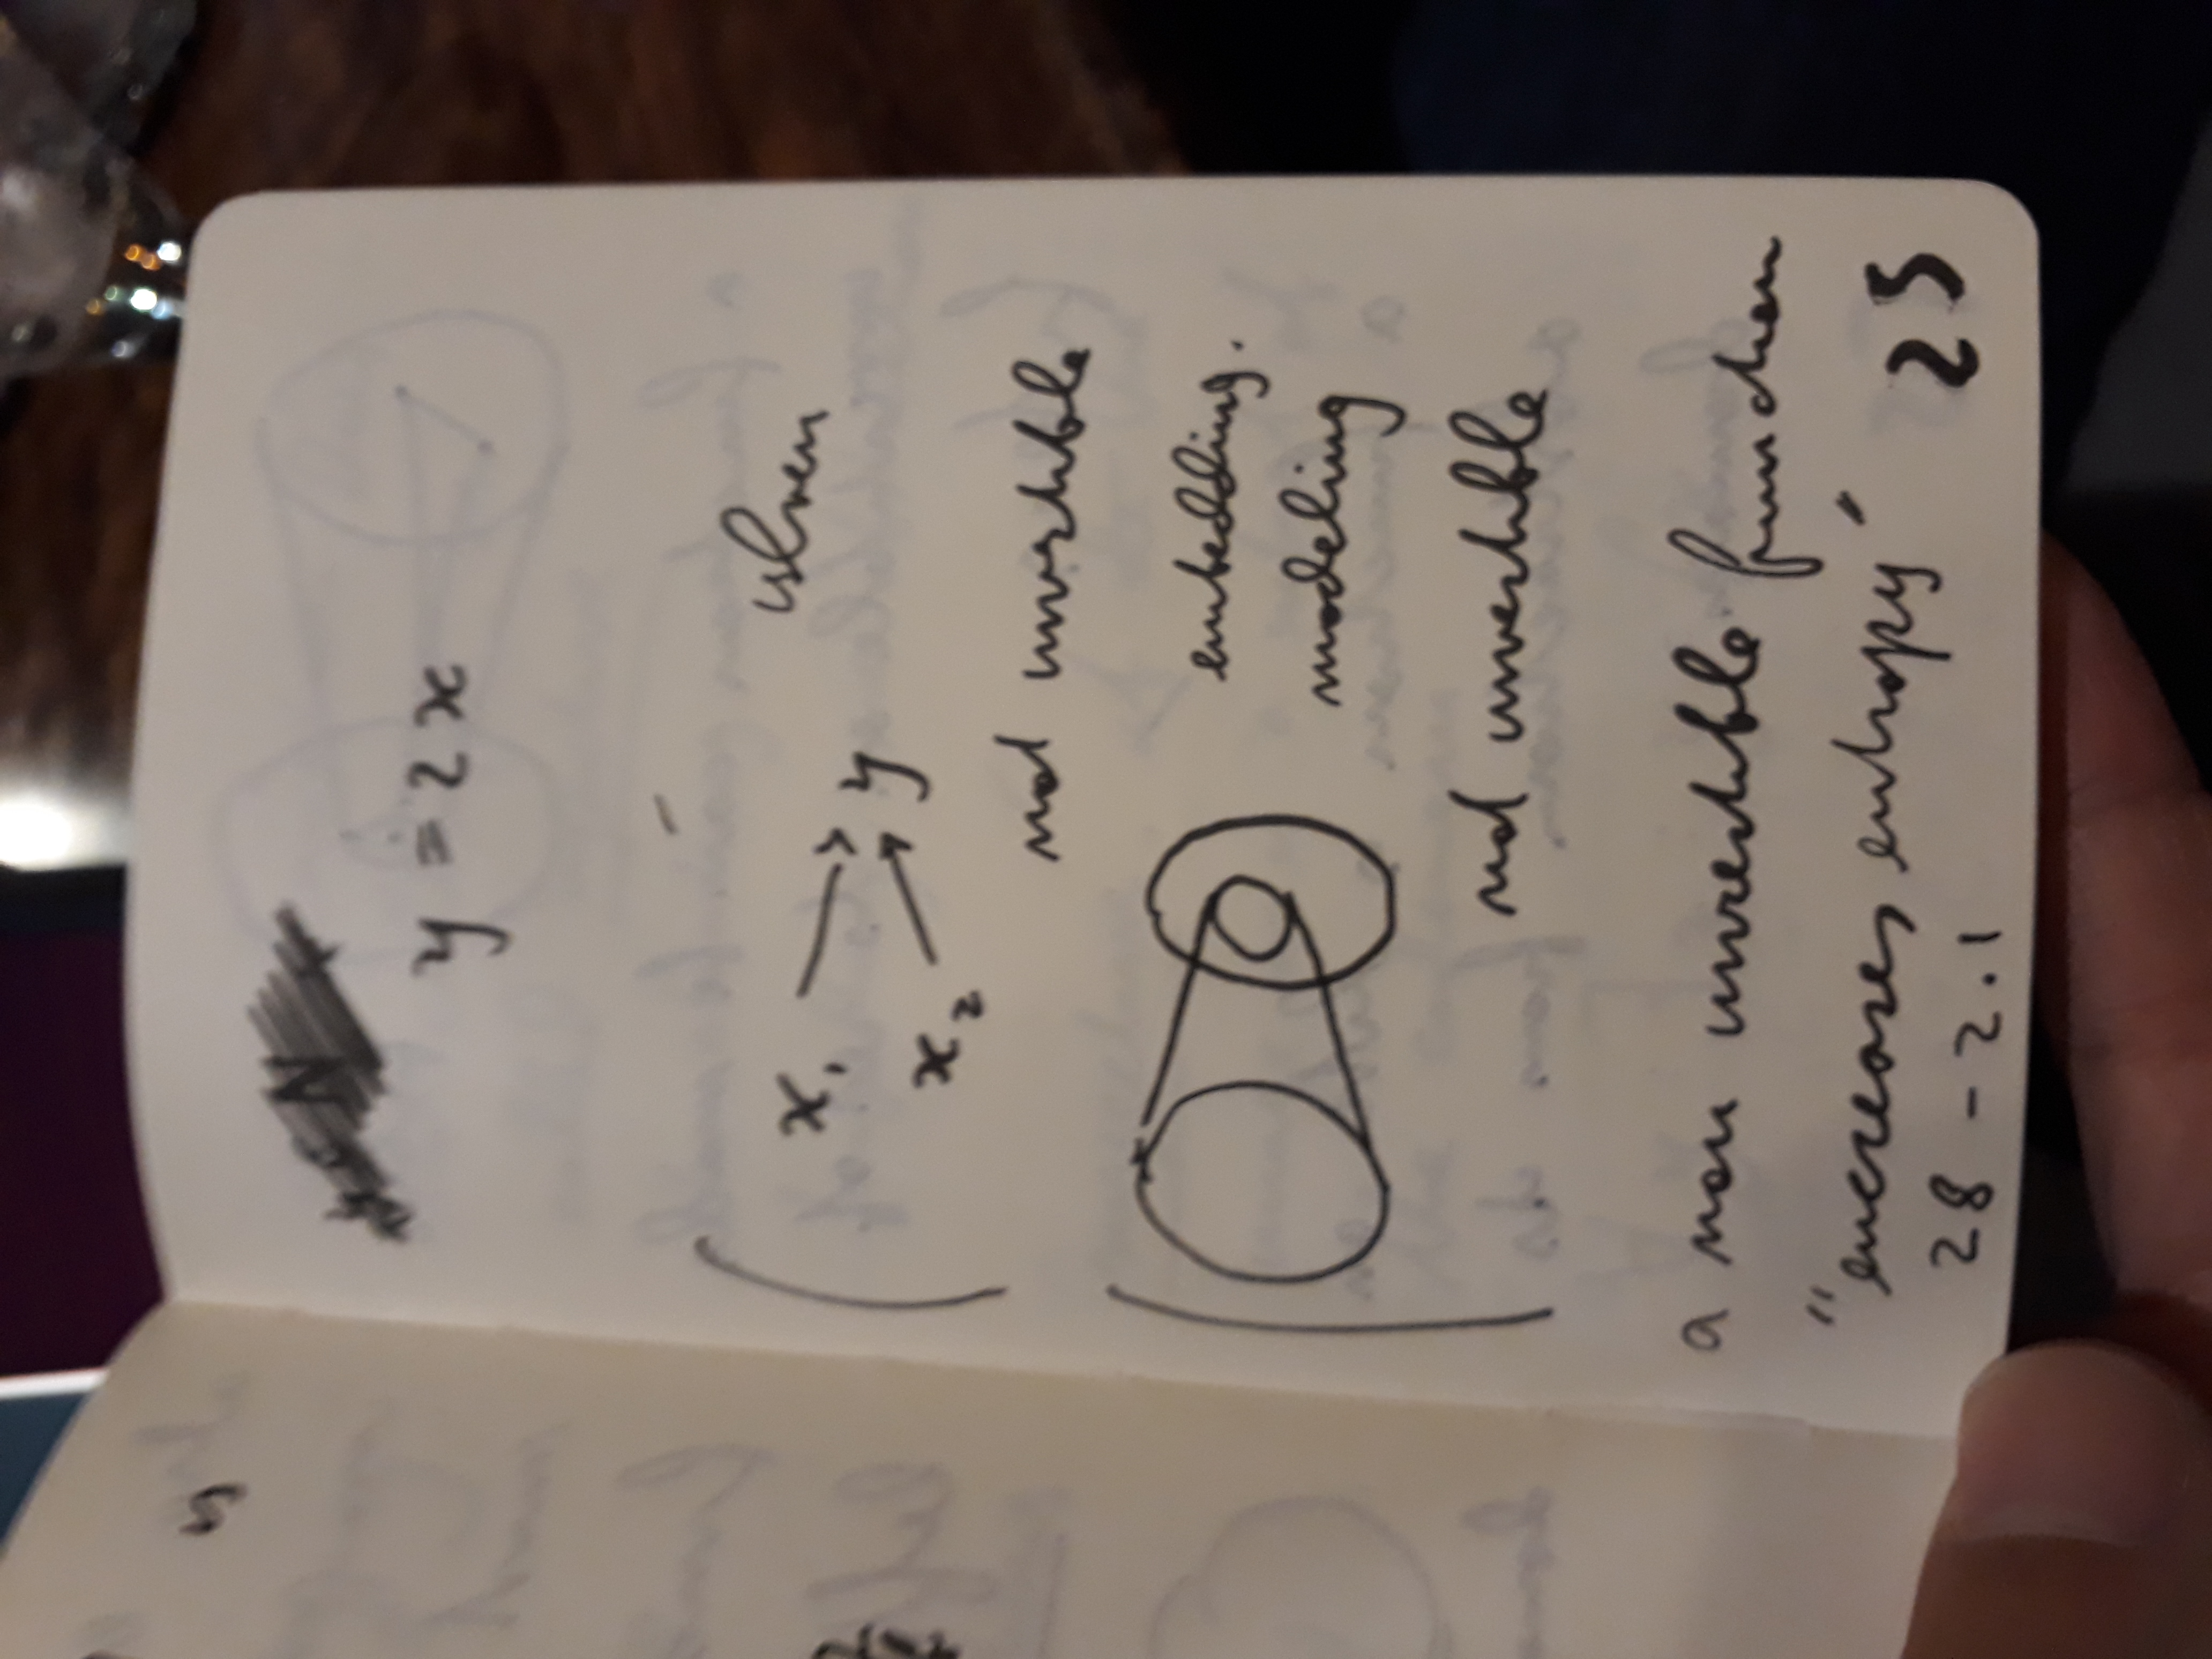 y = 2x
x₁ → y
x₂ →
not invertible
embedding.
modeling
not invertible
a non invertible function
"encreases entropy"
28 - 2.1
25